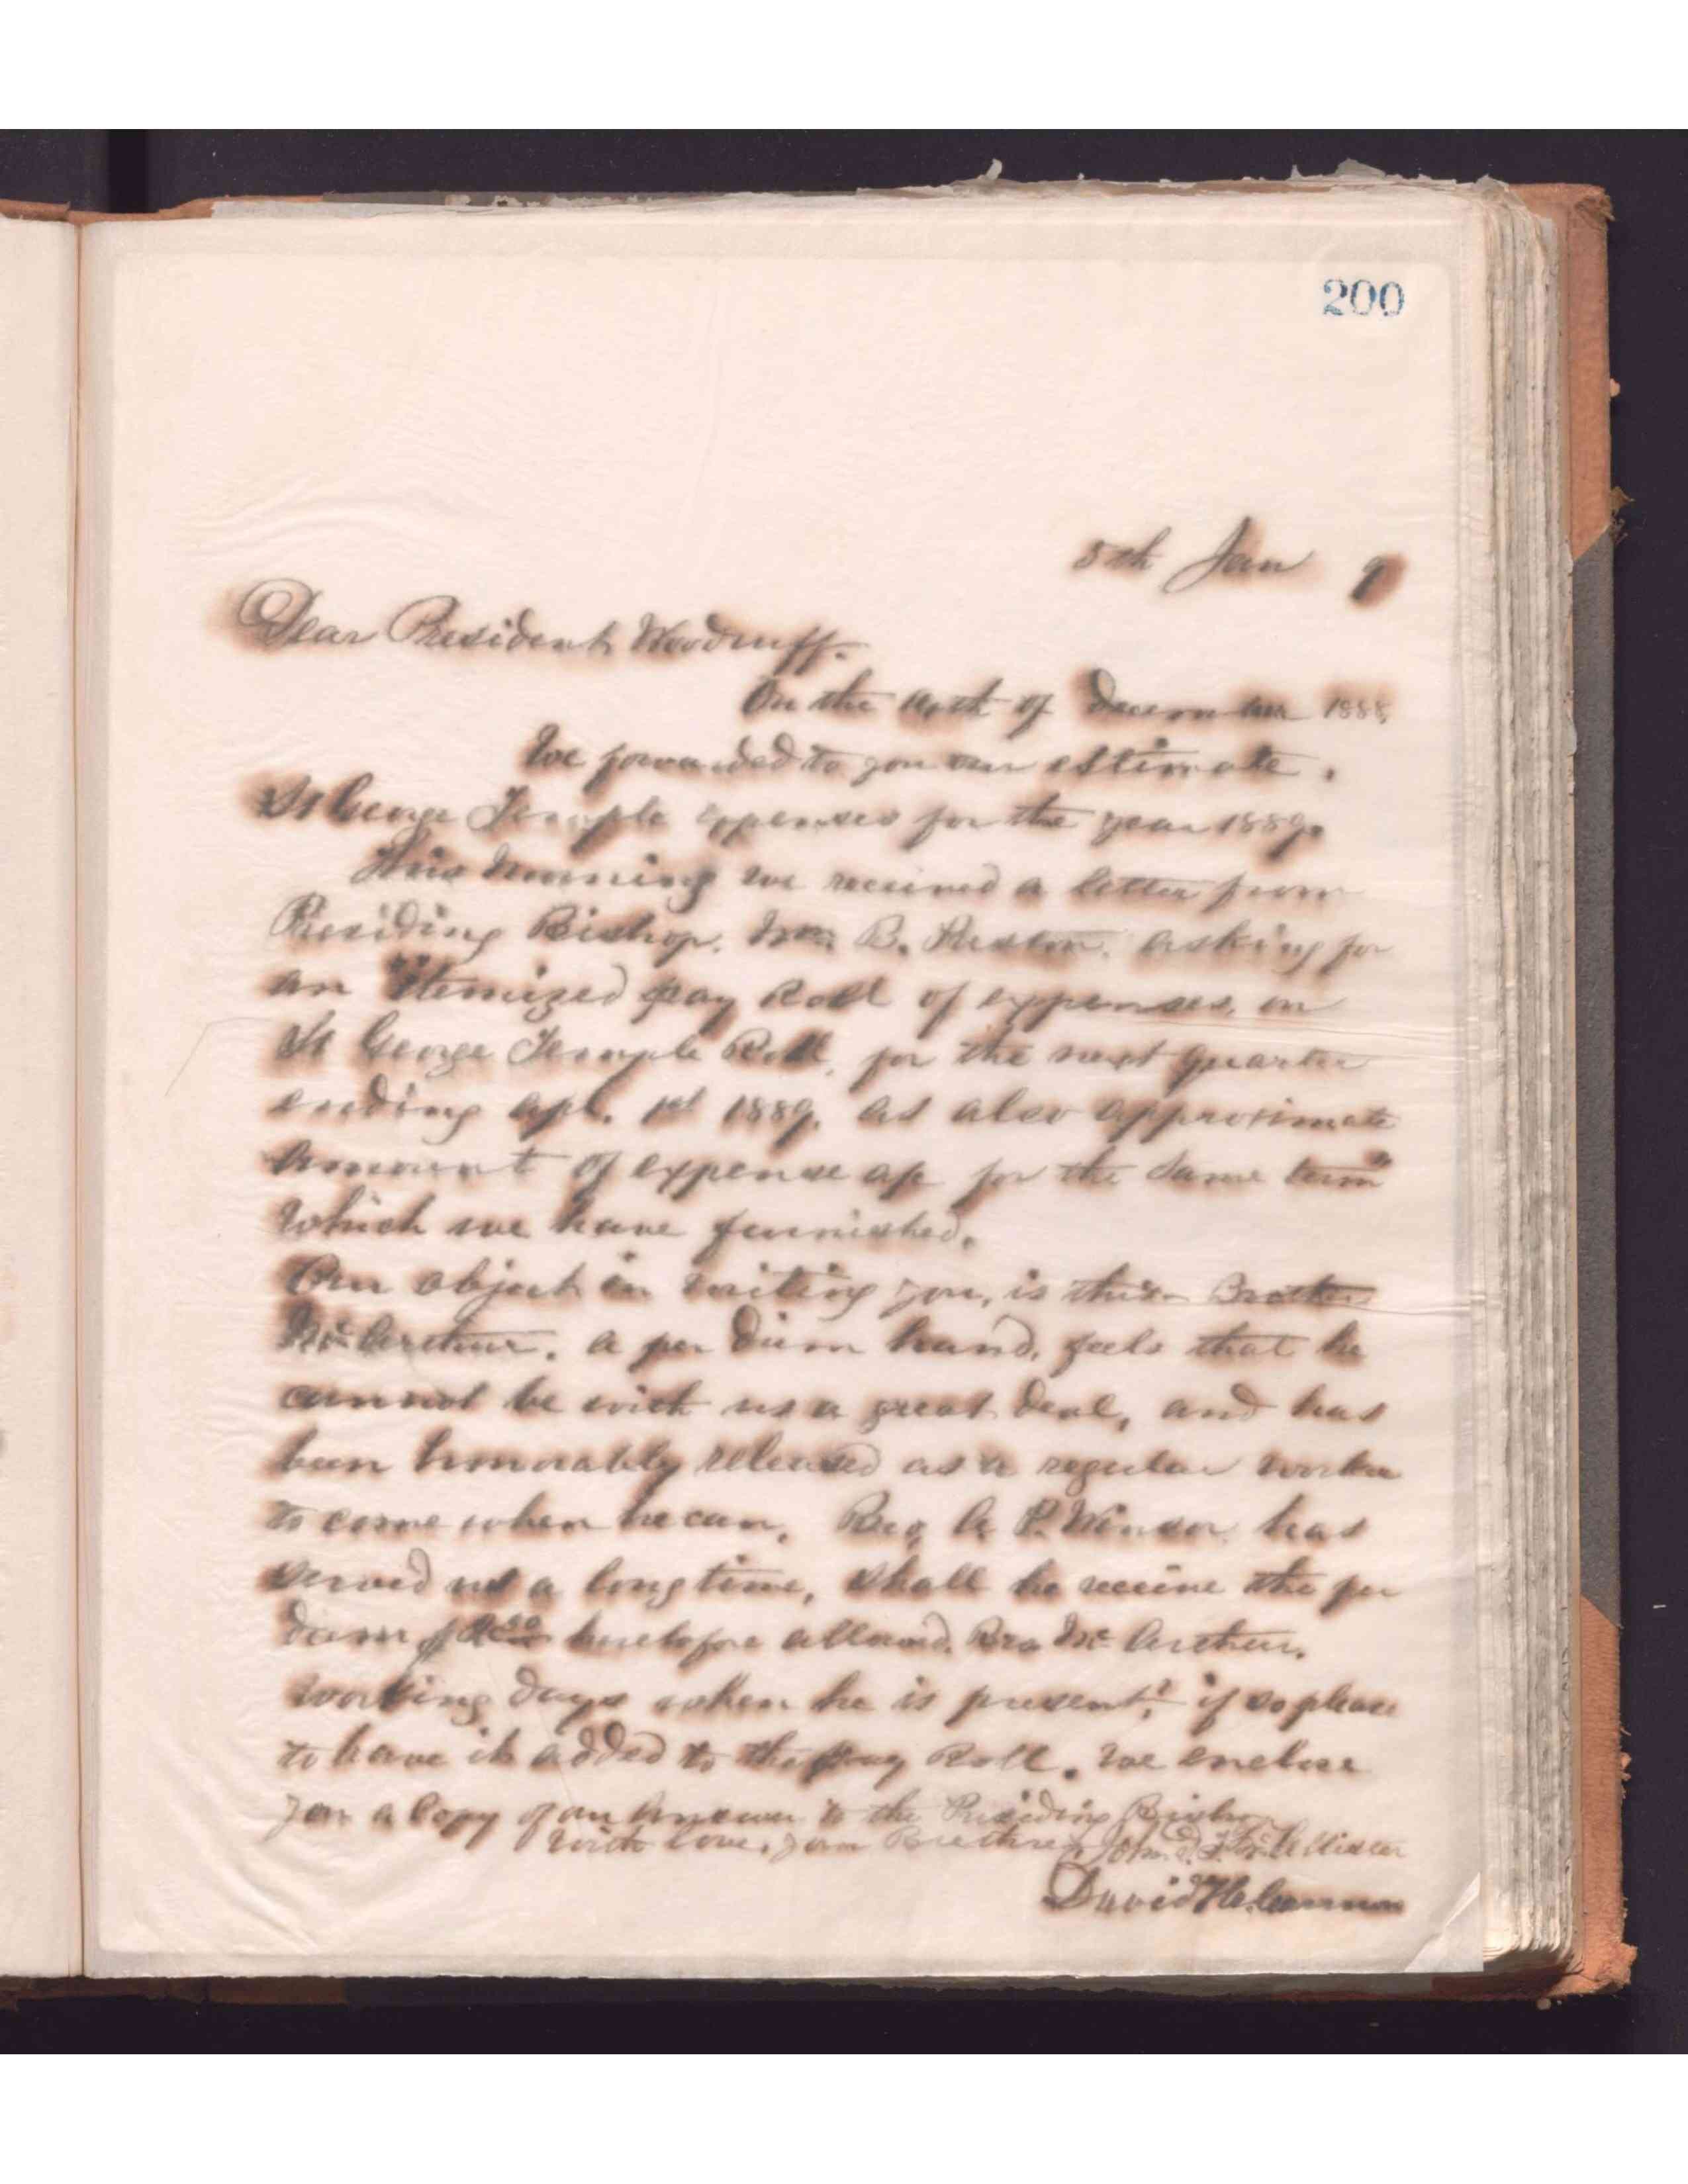 200
5th Jan 9
Dear President Woodruff.
On the of December 1888
We forwarded to you our estimate.
St George Temple expenses for the year 1889.
This morning we received a letter from
Presiding Bishop. Wm B. Preston. asking for
an Itemized pay Roll of expenses, on
St George Temple Roll, for the next quarter
ending Apl. 1st 1889. as also approximate
amount of expense for the same term
which we have furnished.
Our object in writing you, is this - Brother
McArthur. a per diem hand, feels that he
cannot be with us a great deal, and has
been honorably released as a regular worker
to come when he can. Bro A. P. Winsor has
served us a long time, shall he receive the per
diem of heretofore allowed. Bro McArthur.
working days when he is present? if so please
to have it added to the pay Roll. We enclose
you a Copy of our Answer to the Presiding Bishop
With love, your Brethren, John D. T. McAllister
David H. Cannon